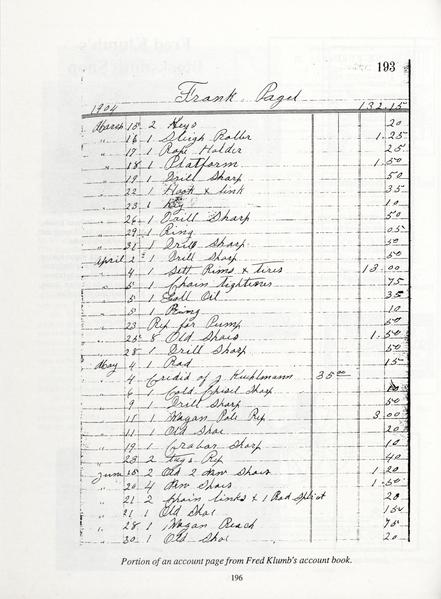 193
Frank Pagel
1904 132.15
March 15 2 Keys 20
" 16 1 Sleigh Roller 1.25
" 17 1 Rope Holder 25
" 18 1 Platform 1.50
" 19 1 Drill Sharp 50
" 22 1 Hook & link 35
" 23 1 Key 10
" 26 1 Drill Sharp 50
" 29 1 Ring 05
" 31 1 Drill Sharp 50
April 2 1 Drill Sharp 50
" 4 1 Sett Rims & tires 13.00
" 5 1 Chain tightener 75
" 5 1 Gall Oil 35
" 5 1 Ring 10
" 23 Rep for Pump 50
" 25 8 Old Shoes 1.50
" 28 1 Drill Sharp 50
May 4 1 Rod 15
" 4 Credid of J Kuehlmann 35.00
" 6 1 Cold Chisel Sharp
" 9 1 Drill Sharp 50
" 11 1 Wagan Pole Rep 3.00
" 11 1 Old Shoe 20
" 19 1 Crabar Sharp 10
" 23 2 tugs Rep 40
June 2 Old 2 New Shoes 1.20
" 20 4 New Shoes 1.50
" 21 2 Chain links & 1 Rod 20
" 21 1 Old Shoe 15
" 28 1 Wagan Reach 75
" 30 1 Old Shoe 20
Portion of an account page from Fred Klumb's account book.
196